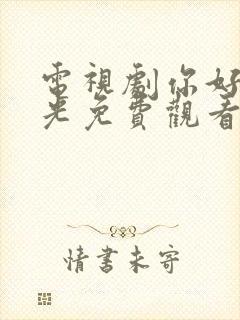 電視劇你好
光免費觀看
情書未寄